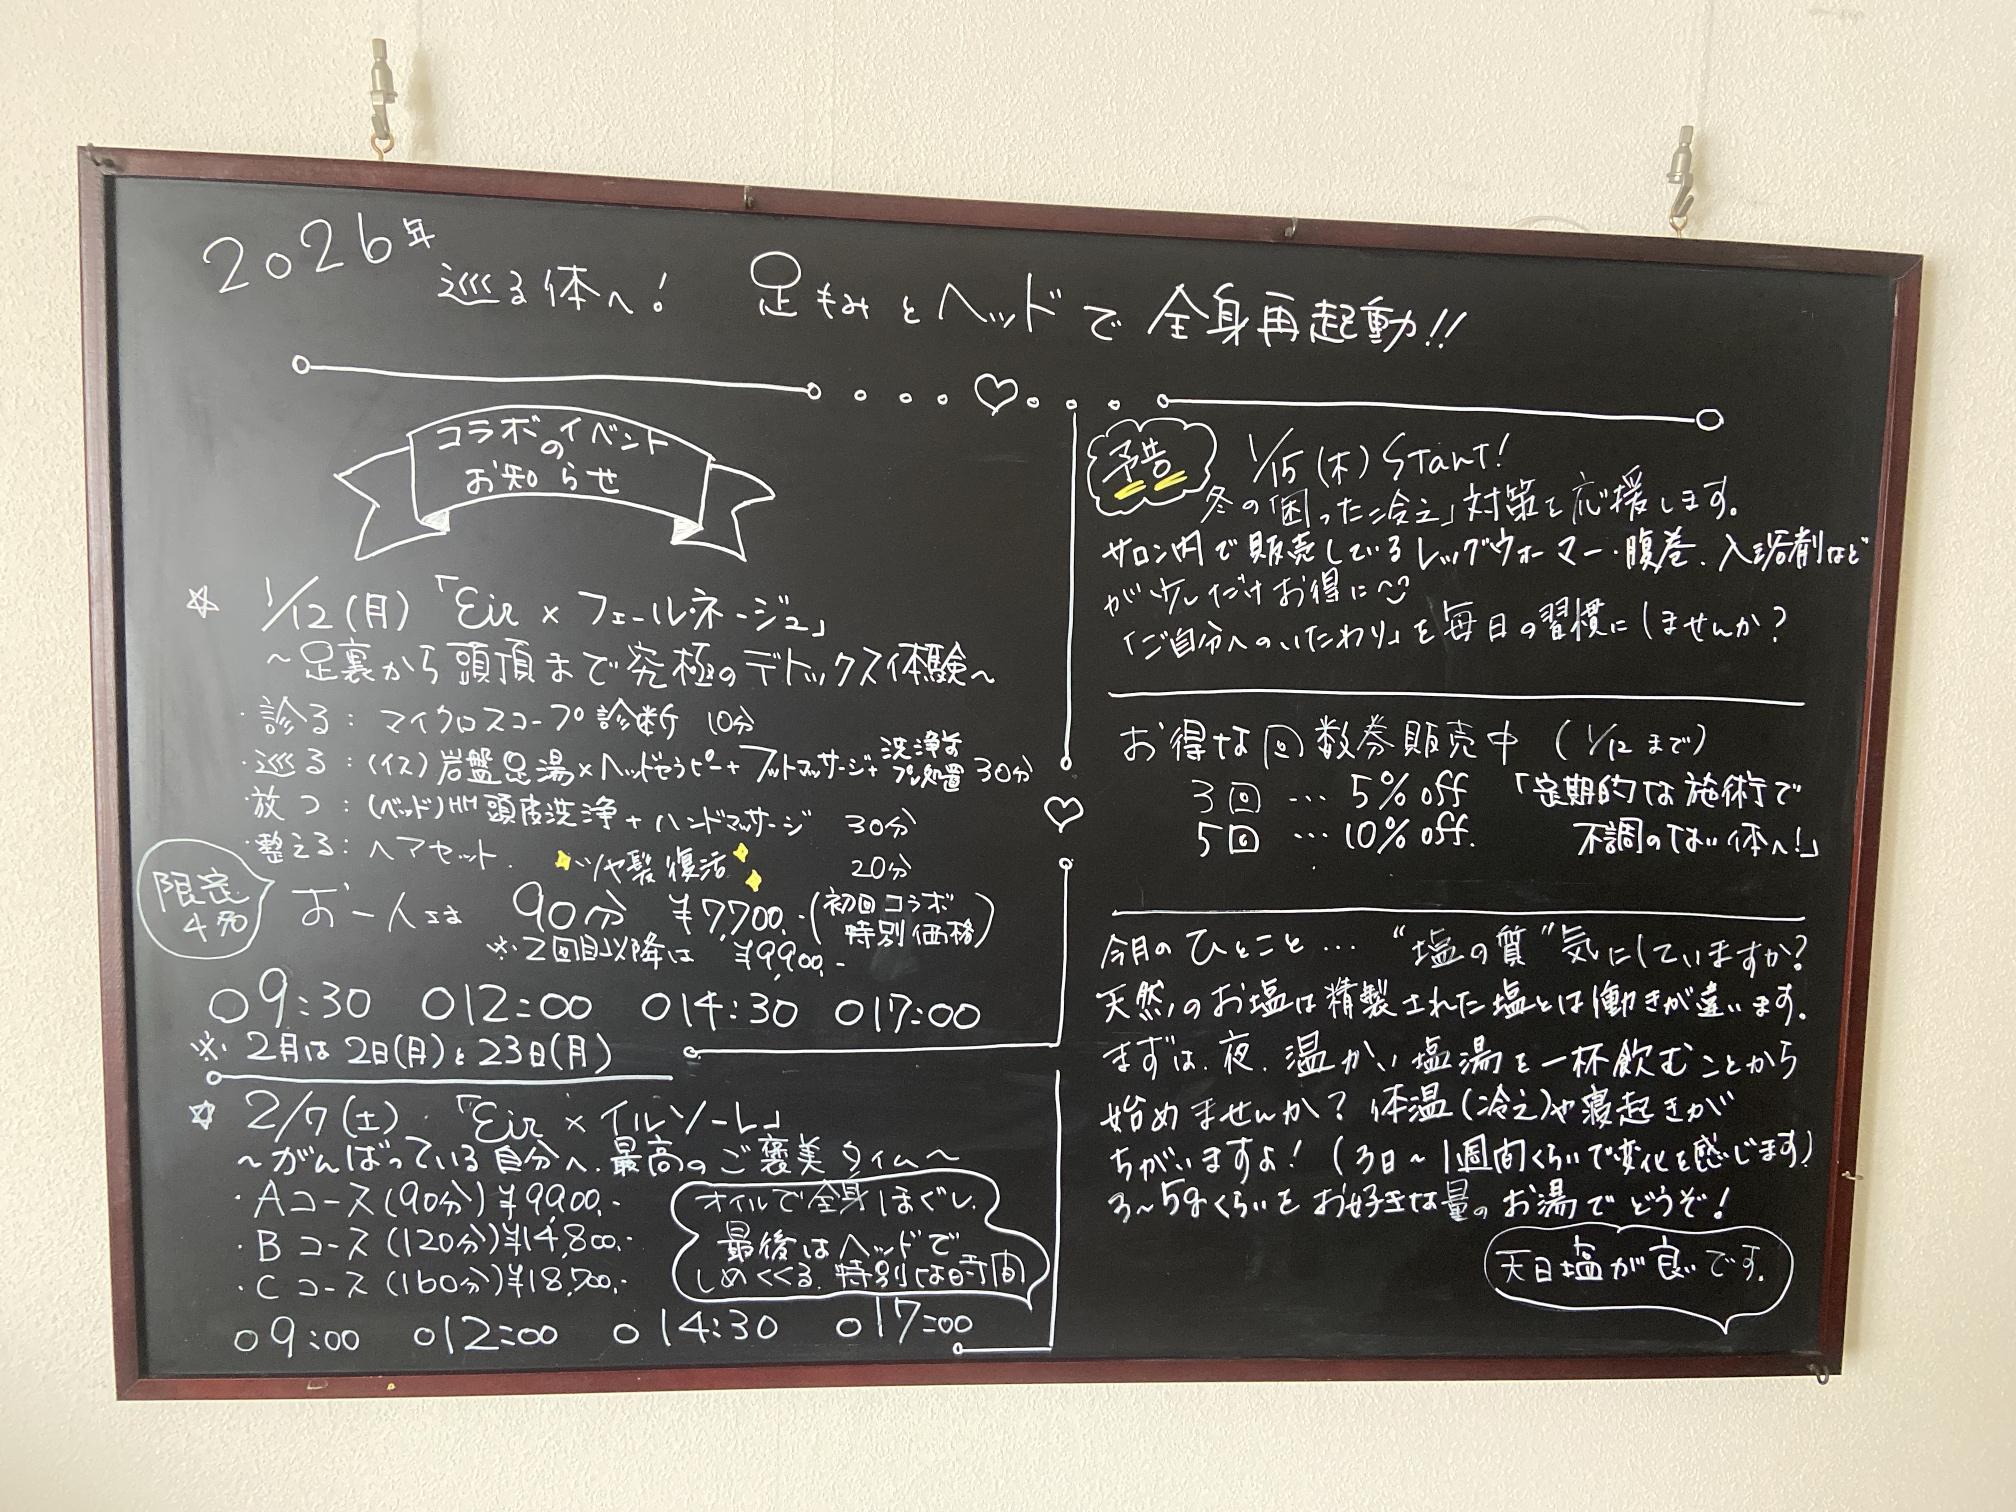 2026年 巡る体へ! 足もみとヘッドで全身再起動!!
コラボのイベント
お知らせ
☆ 1/12(月)「Eir × フェールネージュ」
~足裏から頭頂まで究極のデトックス体験~
・診る:マイクロスコープ診断 10分
・巡る:(イス)岩盤足湯×ヘッドセラピー+フットマッサージ+洗浄前プレ処置 30分
・放つ:(ベッド)HH頭皮洗浄+ハンドマッサージ 30分
・整える:ヘアセット. ツヤ髪復活 20分
限定
4名
お一人さま 90分 ¥7,700.-(初回コラボ特別価格)
※2回目以降は ¥9,900.-
○9:30 ○12:00 ○14:30 ○17:00
※ 2月は2日(月)と23日(月)
☆ 2/7(土)・「Eir × イルソーレ」
~がんばっている自分へ.最高のご褒美タイム~
・Aコース(90分)¥9,900.-
・Bコース(120分)¥14,800.-
・Cコース(160分)¥18,700.-
オイルで全身ほぐし.
最後はヘッドで
しめくくる.特別な時間
○9:00 ○12:00 ○14:30 ○17:00
予告
1/15(木)Start!
冬の「困った冷え」対策を応援します。
サロン内で販売しているレッグウォーマー・腹巻.入浴剤など
が少しだけお得に
「ご自分へのいたわり」を毎日の習慣にしませんか?
お得な回数券販売中 (1/12まで)
3回 … 5%off 「定期的な施術で
5回 … 10%off. 不調のない体へ!」
今月のひとこと… “塩の質”気にしていますか?
天然のお塩は精製された塩とは働きが違います.
まずは.夜.温かい塩湯を一杯飲むことから
始めませんか?体温(冷え)や寝起きが
ちがいますよ!(3日~1週間くらいで変化を感じます)
3~5gくらいをお好きな量のお湯でどうぞ!
天日塩が良いです.